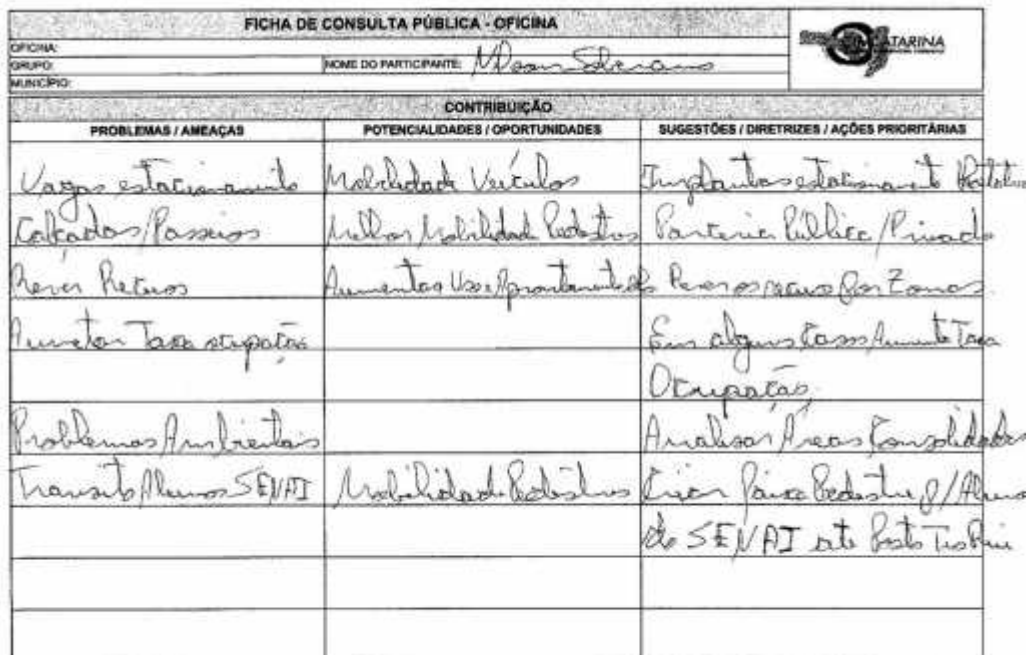 FICHA DE CONSULTA PÚBLICA - OFICINA
OFICINA:
GRUPO: NOME DO PARTICIPANTE:
MUNICÍPIO:
CATARINA
CONTRIBUIÇÃO
PROBLEMAS / AMEAÇAS POTENCIALIDADES / OPORTUNIDADES SUGESTÕES / DIRETRIZES / AÇÕES PRIORITÁRIAS
Vagas estacionamento Mobilidade Veículos Implantar estacionamento
Calçadas/Passeios Melhor Mobilidade Pedestres Parceria Pública/Privada
Rever Recuos Aumentar Uso Rever os recuos por Zonas.
Aumetar Taxa ocupação Em alguns casos Aumento Taxa
Ocupação
Problemas Ambientais Analisar Áreas Consolidadas
Transito Alunos SENAI Mobilidade Pedestres Criar Faixa Pedestre p/Alunos
do SENAI até Posto